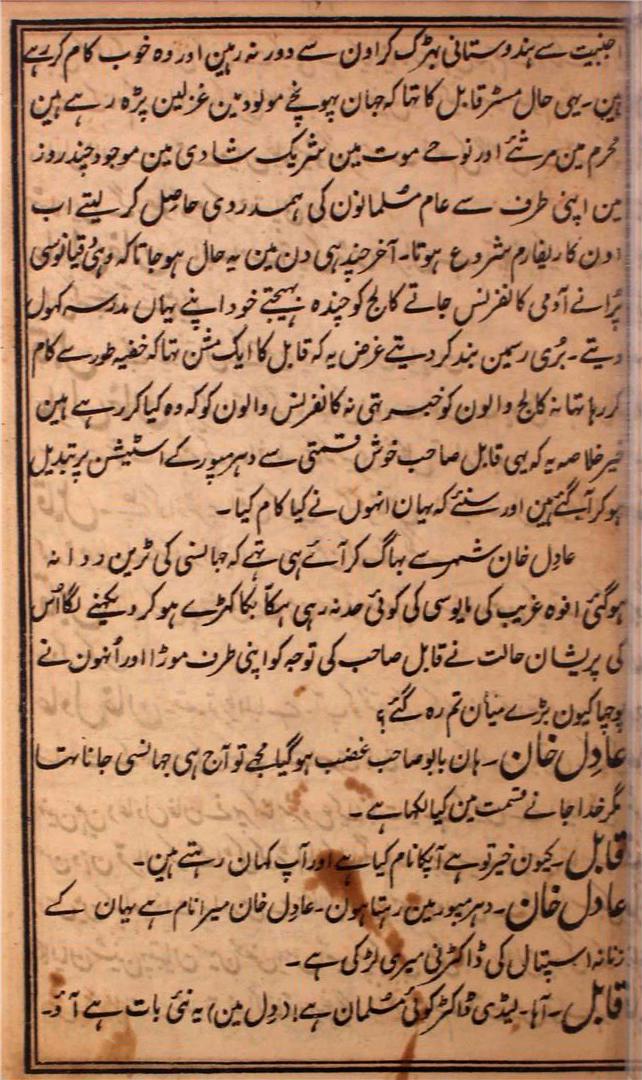 اجنبیت سے ہندوستانی بہڑک کر اون سے دور نہ رہین اور وہ خوب کام کر رہے
ہین۔ یہی حال مسٹر قابل کا تہا کہ جہان پہونچے مولود مین غزلین پڑہ رہے ہین
محرم مین مرثئے اور نوحے موت مین شریک شادی مین موجود چند روز
مین اپنی طرف سے عام مسلمانون کی ہمدردی حاصل کر لیتے اب
اون کا ریفارم شروع ہوتا۔ آخر چند ہی دن مین یہ حال ہو جاتا کہ وہی دقیانوسی
پرانے آدمی کانفرنس جاتے کالج کو چندہ بہیجتے خود اپنے یہان مدرسہ کہول
دیتے۔ بری رسمین بند کر دیتے غرض یہ کہ قابل کا ایک مشن تہا کہ خفیہ طور سے کام
کر رہا تہا نہ کالج والون کو خبر تہی نہ کانفرنس والون کو کہ وہ کیا کر رہے ہین
خیر خلاصہ یہ کہ یہی قابل صاحب خوش قسمتی سے دہرمپور کے اسٹیشن پر تبدیل
ہو کر آ گئے ہین اور سنئے کہ یہان انہوں نے کیا کام کیا۔
عادل خان شہر سے بہاگ کر آئے ہی تہے کہ جہانسی کی ٹرین روانہ
ہو گئی افوہ غریب کی مایوسی کی کوئی حد نہ رہی ہکا بکا کہڑے ہو کر دیکہنے لگا اُس
کی پریشان حالت نے قابل صاحب کی توجہ کو اپنی طرف موڑا اور اُنہون نے
پوچہا کیون بڑے میان تم رہ گئے؟
عادل خان۔ ہان بابو صاحب غضب ہو گیا مجہے تو آج ہی جہانسی جانا تہا
مگر خدا جانے قسمت مین کیا لکہا ہے۔
قابل۔ کیون خیر تو ہے آپکا نام کیا ہے اور آپ کہان رہتے ہین۔
عادل خان۔ دہرمپور مین رہتا ہون۔ عادل خان میرا نام ہے یہان کے
زنانہ اسپتال کی ڈاکٹرنی میری لڑکی ہے۔
قابل۔ آہا۔ لیڈی ڈاکٹر کوئی مسلمان ہے! (دل مین) یہ نئی بات ہے آؤ۔